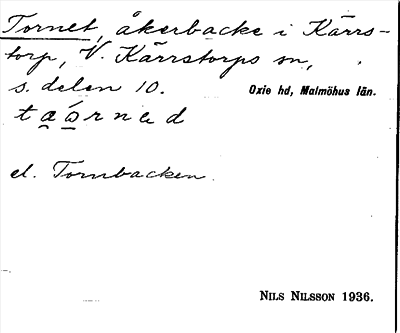 Tornet, åkerbacke i Kärrs-
torp, V. Kärrstorps sn,
s. delen 10. Oxie hd, Malmöhus län.
el. Tornbacken.
NILS NILSSON 1936.